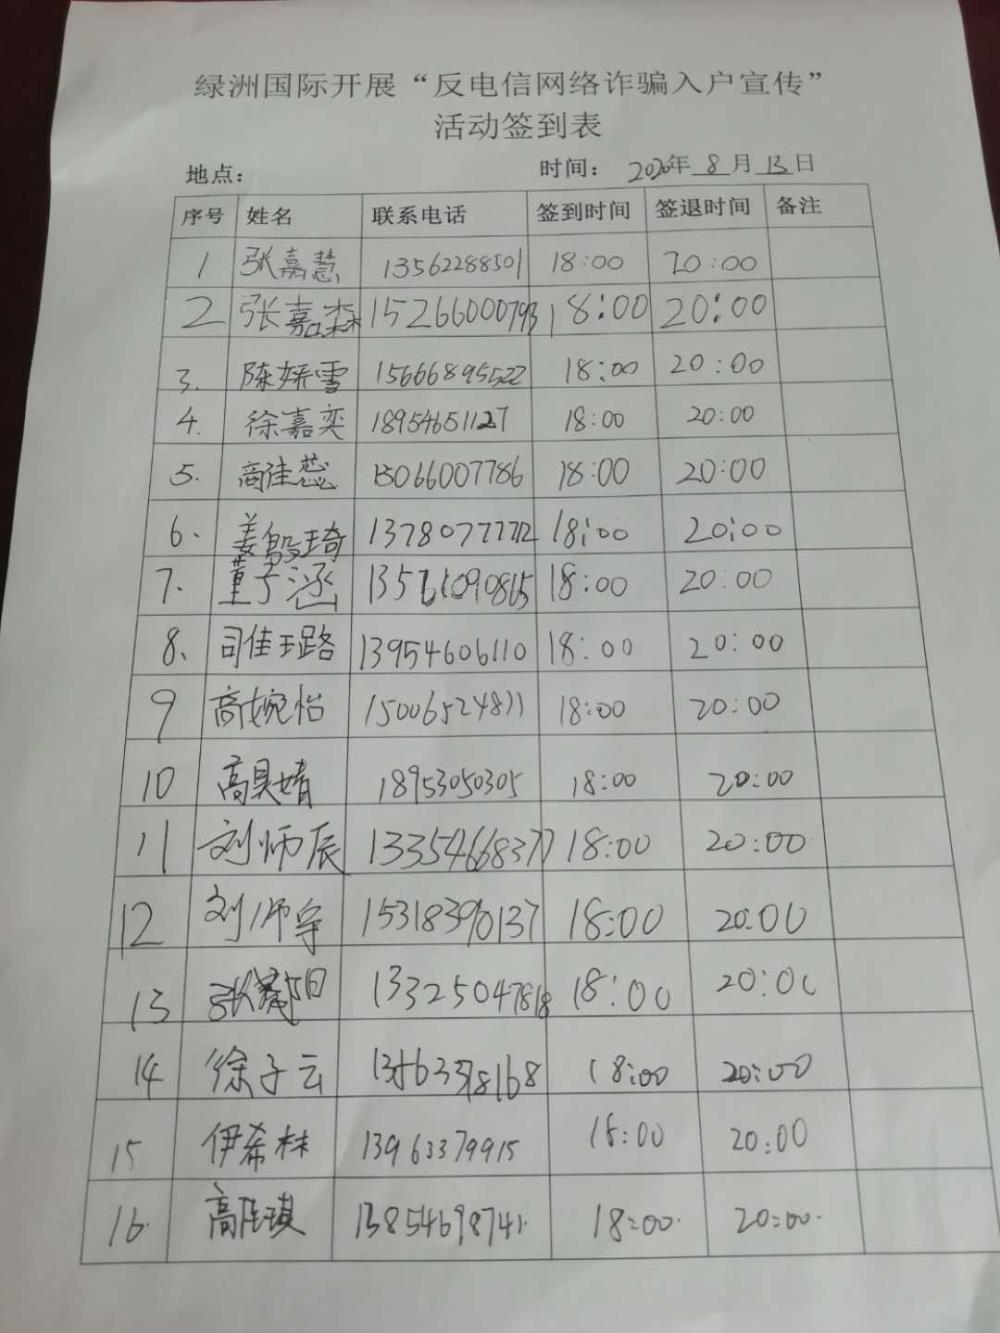 绿洲国际开展“反电信网络诈骗入户宣传”
活动签到表
地点： 时间： 2020年 8 月 13 日
序号 姓名 联系电话 签到时间 签退时间 备注
1 张嘉慧 13562288501 18:00 20:00
2 张嘉森 15266000793 18:00 20:00
3. 陈娇雪 15666895522 18:00 20:00
4. 徐嘉奕 18954651127 18:00 20:00
5. 高佳蕊 15066007786 18:00 20:00
6. 姜毅琦 18:00 20:00
7. 董子涵 18:00 20:00
8. 司佳璐 13954606110 18:00 20:00
9 高婉怡 15006524811 18:00 20:00
10 18953050305 18:00 20:00
11 刘师辰 13354668377 18:00 20:00
12 刘师宇 15318390137 18:00 20:00
13 张 18:00 20:00
14 徐子云 18:00 20:00
15 伊希林 13963379915 18:00 20:00
16. 高 琪 13854698741. 18:00. 20:00.